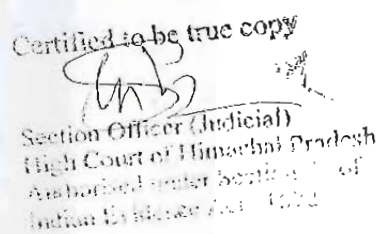 Certified to be true copy
Section Officer (Judicial)
High Court of Himachal Pradesh
Authorised under of
Indian Evidence Act